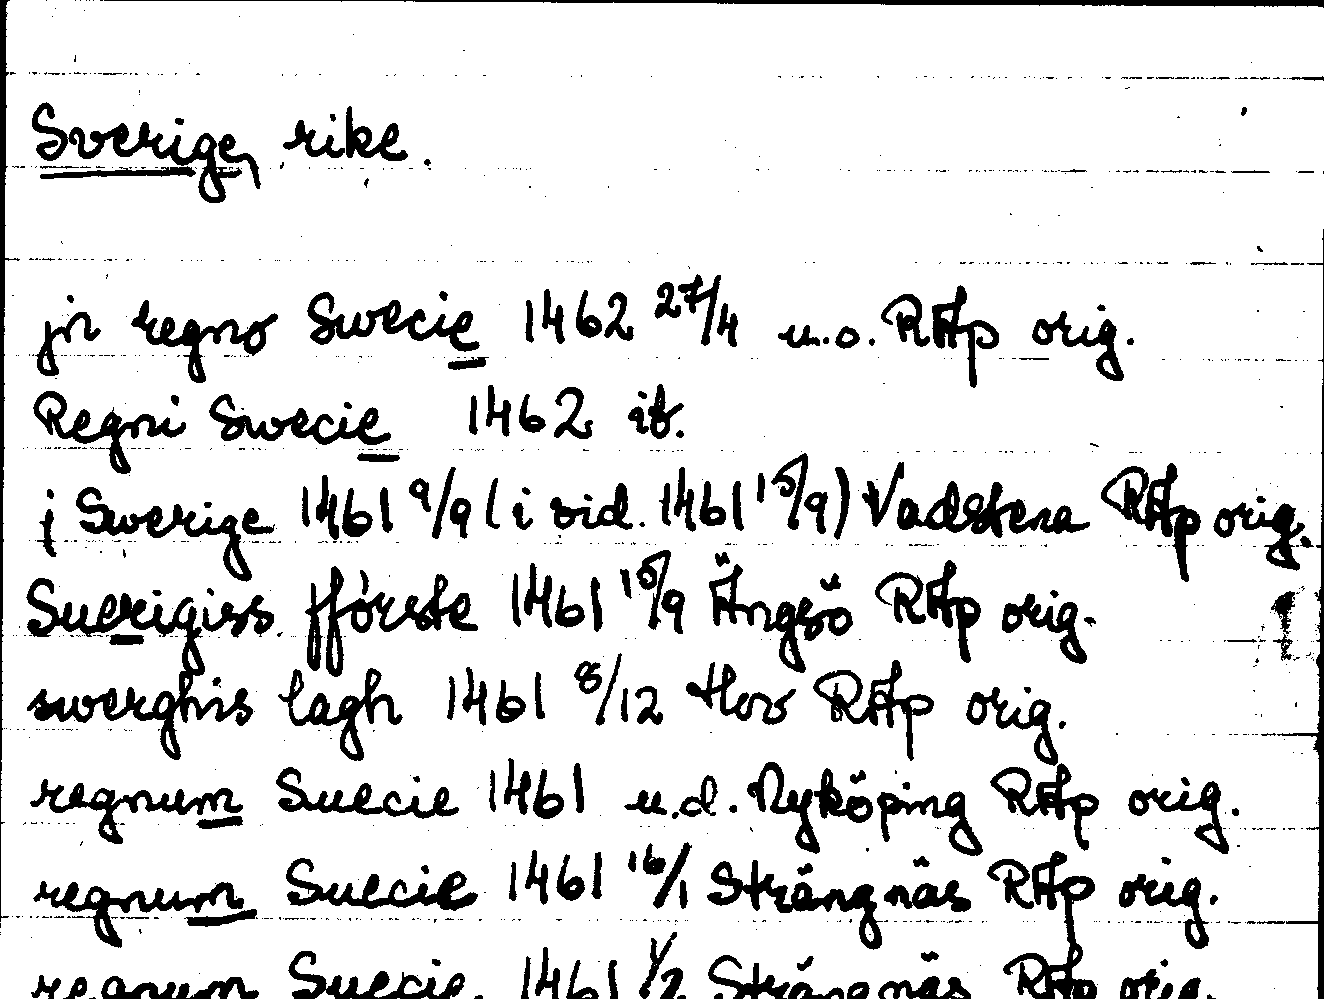 Sverige, rike.
jn regno Swecie 1462 27/4 u.o. RAp orig.
Regni Swecie 1462 ib.
j Swerige 1461 9/9 (i vid. 1461 15/9) Vadstena RAp orig.
Suerigiss fförste 1461 15/9 Ängsö RAp orig.
swerghis lagh 1461 8/12 Hov RAp orig.
regnum Suecie 1461 u.d. Nyköping RAp orig.
regnum Suecie 1461 16/1 Strängnäs RAp orig.
regnum Suecie 1461 1/2 Strängnäs RAp orig.